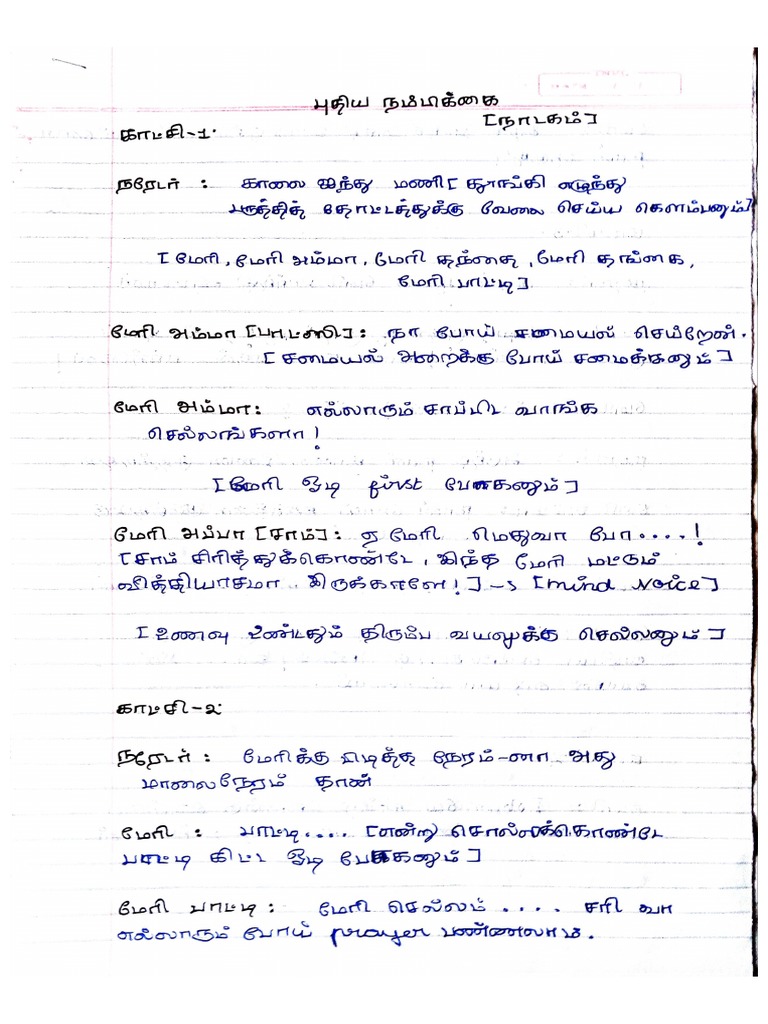 புதிய நம்பிக்கை
[நாடகம்]
காட்சி-1.
நரேடர் : காலை ஐந்து மணி [தூங்கி எழுந்து
பருத்தித் தோட்டத்துக்கு வேலை செய்ய கெளம்பனும்]
[மேரி, மேரி அம்மா, மேரி தந்தை, மேரி தங்கை,
மேரி பாட்டி]
மேரி அம்மா [பாட்ஸி] : நா போய் சமையல் செய்றேன்.
[சமையல் அறைக்கு போய் சமைக்கனும்]
மேரி அம்மா: எல்லாரும் சாப்பிட வாங்க
செல்லங்களா!
[மேரி ஓடி first போகனும்]
மேரி அப்பா [சாம்] : ஏ மேரி மெதுவா போ....!
[சாம் சிரித்துக்கொண்டே, இந்த மேரி மட்டும்
வித்தியாசமா இருக்காளே!] → [mind voice]
[உணவு உண்டதும் திரும்ப வயலுக்கு செல்லனும்]
காட்சி-2
நரேடர் : மேரிக்கு பிடித்த நேரம்-னா அது
மாலைநேரம் தான்
மேரி : பாட்டி.... [என்று சொல்லிக்கொண்டே
பாட்டி கிட்ட ஓடி போகனும்]
மேரி பாட்டி : மேரி செல்லம் .... சரி வா
எல்லாரும் போய் prayer பண்ணலாம்.